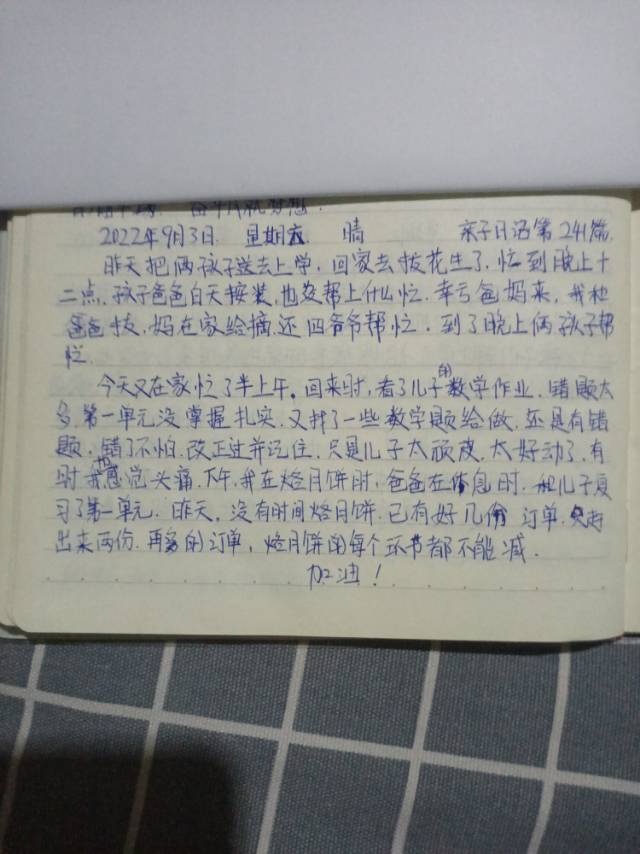 2022年9月3日 星期六 晴 亲子日记第241篇.
昨天把俩孩子送去上学,回家去拔花生了.忙到晚上十
二点,孩子爸爸白天按装,也没帮上什么忙.幸亏爸妈来,我和
爸爸拔,妈在家给摘,还四爷爷帮忙.到了晚上俩孩子帮
忙.
今天又在家忙了半上午,回来时,看了儿子的数学作业,错题太
多,第一单元没掌握扎实.又找了一些数学题给做,还是有错
题,错了不怕,改正过并记住.只是儿子太顽皮,太好动了.有
时我都感觉头痛.下午,我在烙月饼时,爸爸在休息时.和儿子复
习了第一单元.昨天,没有时间烙月饼.已有好几份订单,只
出来两份.再多的订单,烙月饼的每个环节都不能减.
加油!